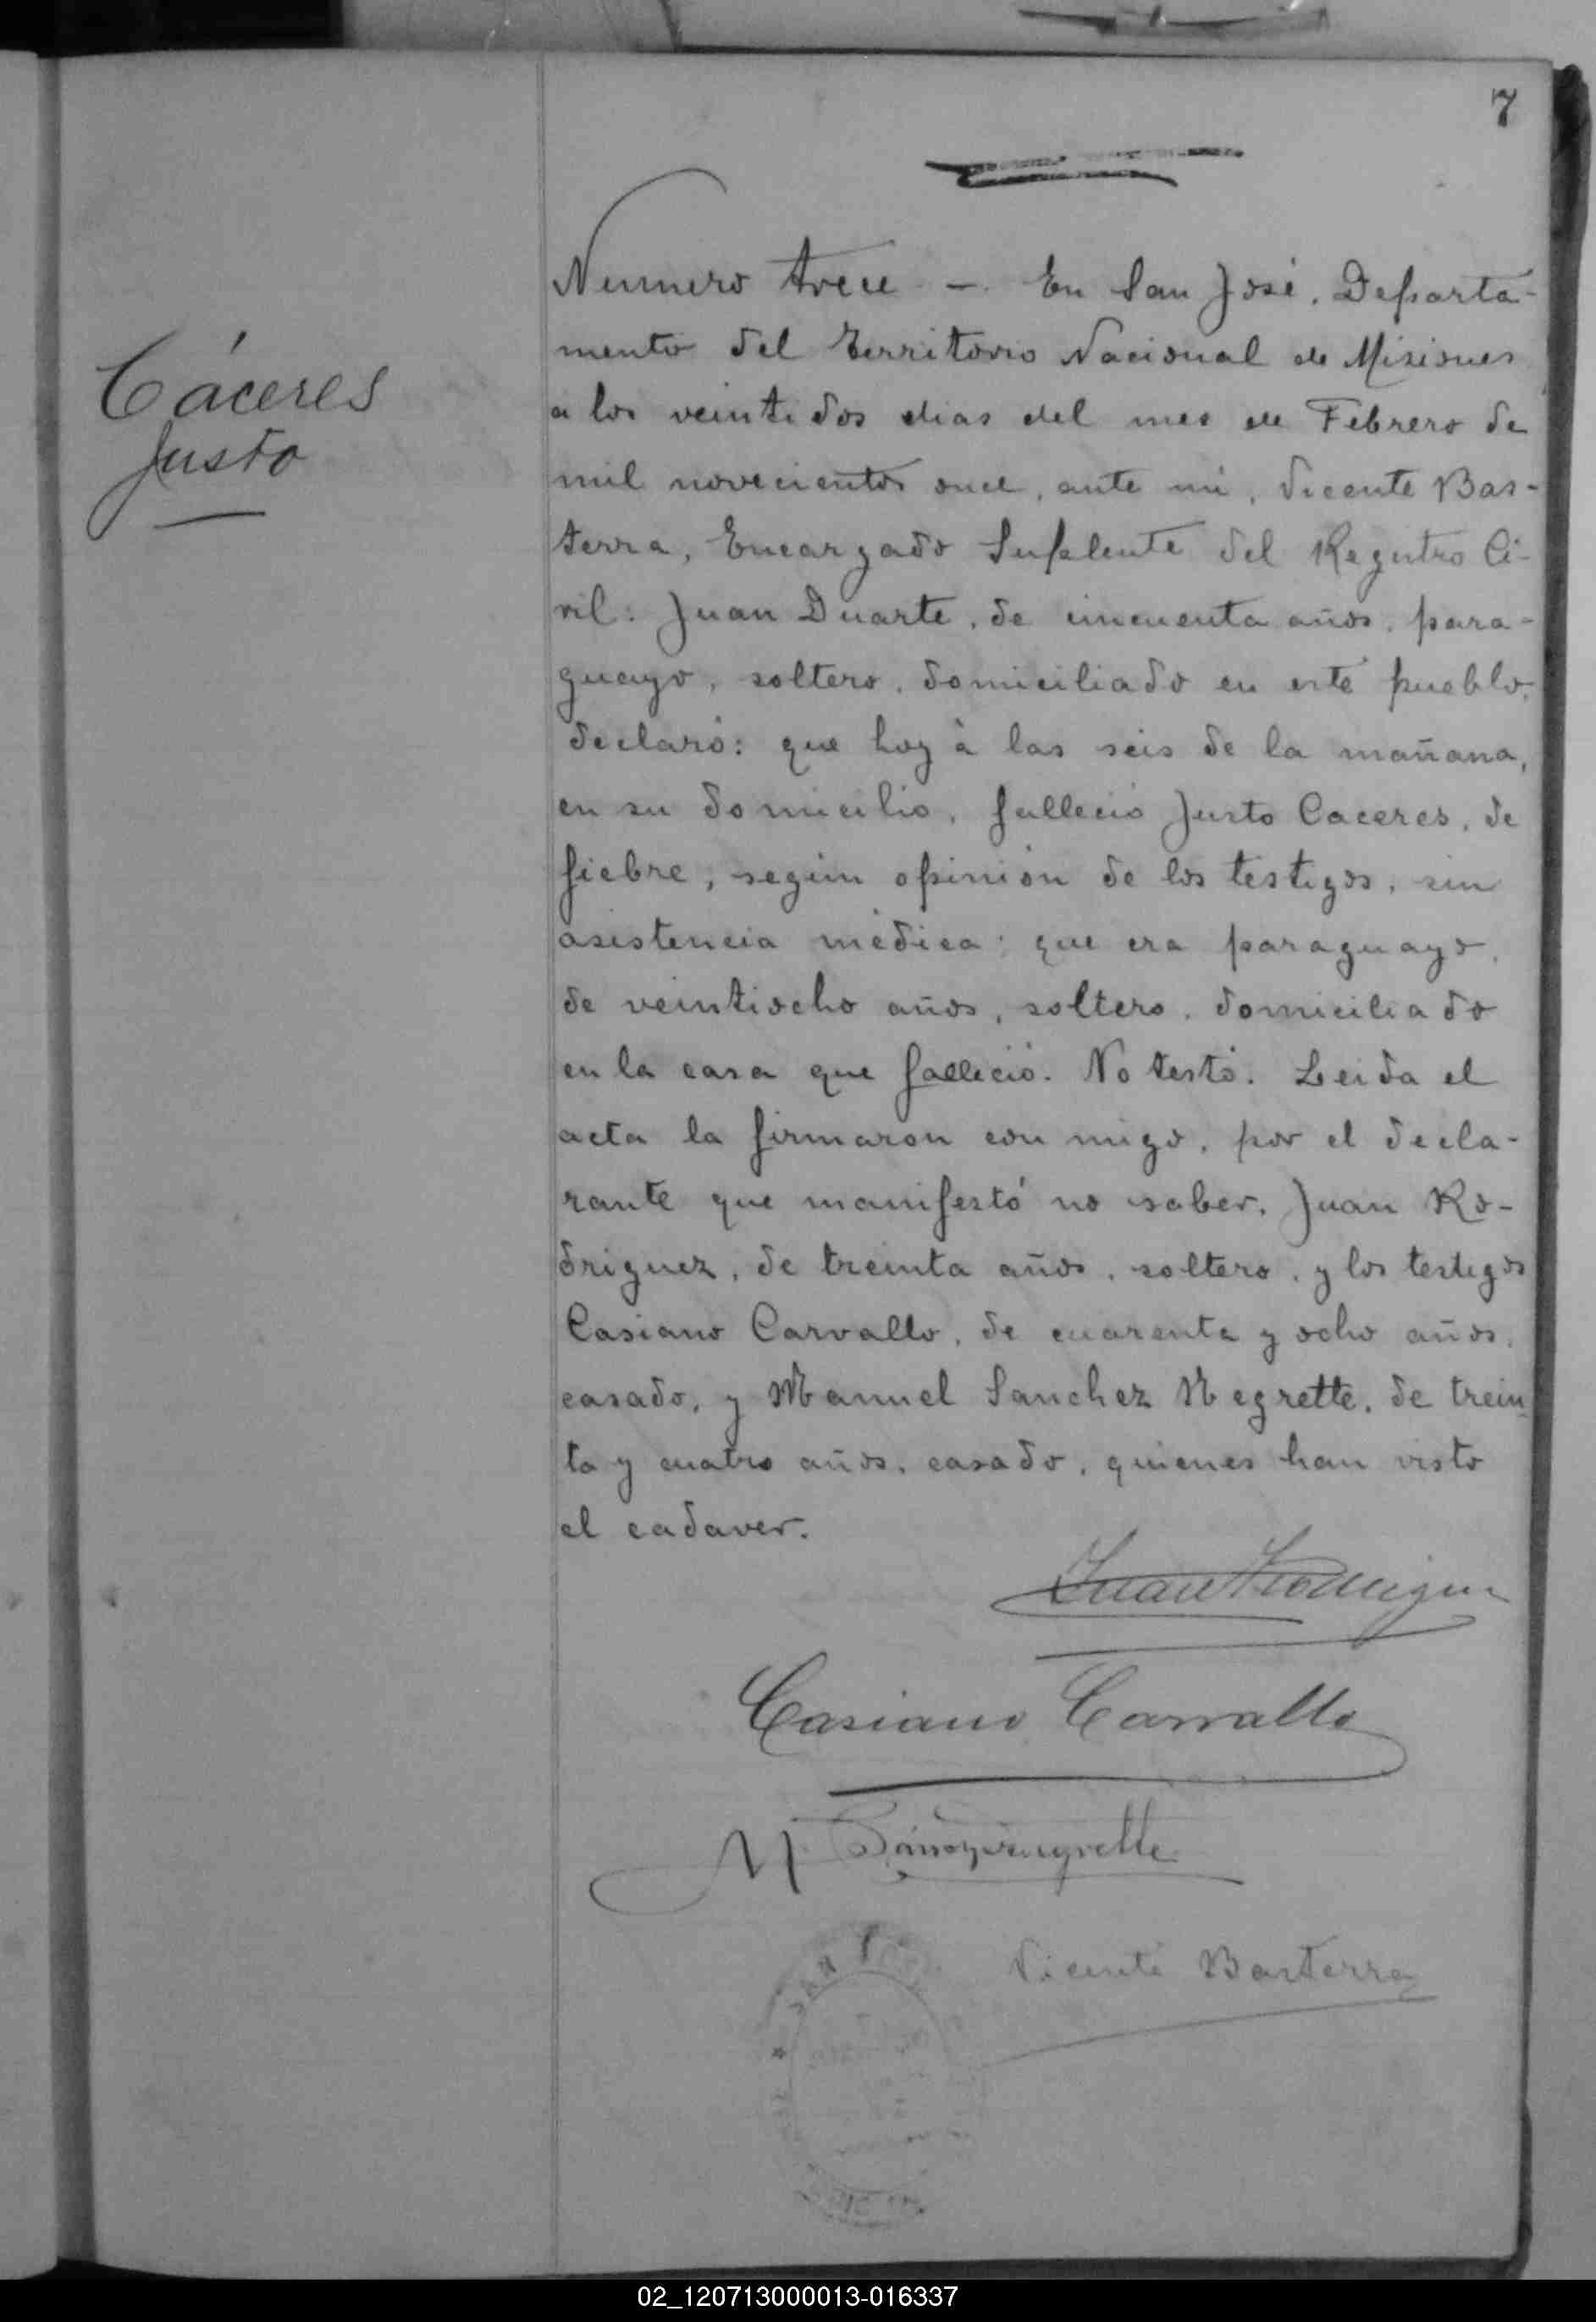 7
Cáceres
Justo
Numero trece — En San José, Departa-
mento del Territorio Nacional de Misiones
a los veintidos dias del mes de Febrero de
mil novecientos once, ante mi, Vicente Bas-
terra, Encargado Suplente del Registro Ci-
vil: Juan Duarte, de cincuenta años, para-
guayo, soltero, domiciliado en este pueblo,
declaró: que hoy à las seis de la mañana,
en su domicilio, falleció Justo Caceres, de
fiebre, según opinión de los testigos, sin
asistencia médica; que era paraguayo,
de veintiocho años, soltero, domiciliado
en la casa que falleció. No testó. Leida el
acta la firmaron con migo, por el decla-
rante que manifestó no saber, Juan Ro-
driguez, de treinta años, soltero, y los testigos
Casiano Carvallo, de cuarenta y ocho años,
casado, y Manuel Sanchez Negrette, de trein
ta y cuatro años, casado, quienes han visto
el cadaver.
Juan Rodriguez
Casiano Carvallo
M
Vicente Basterra
SAN
02_120713000013-016337